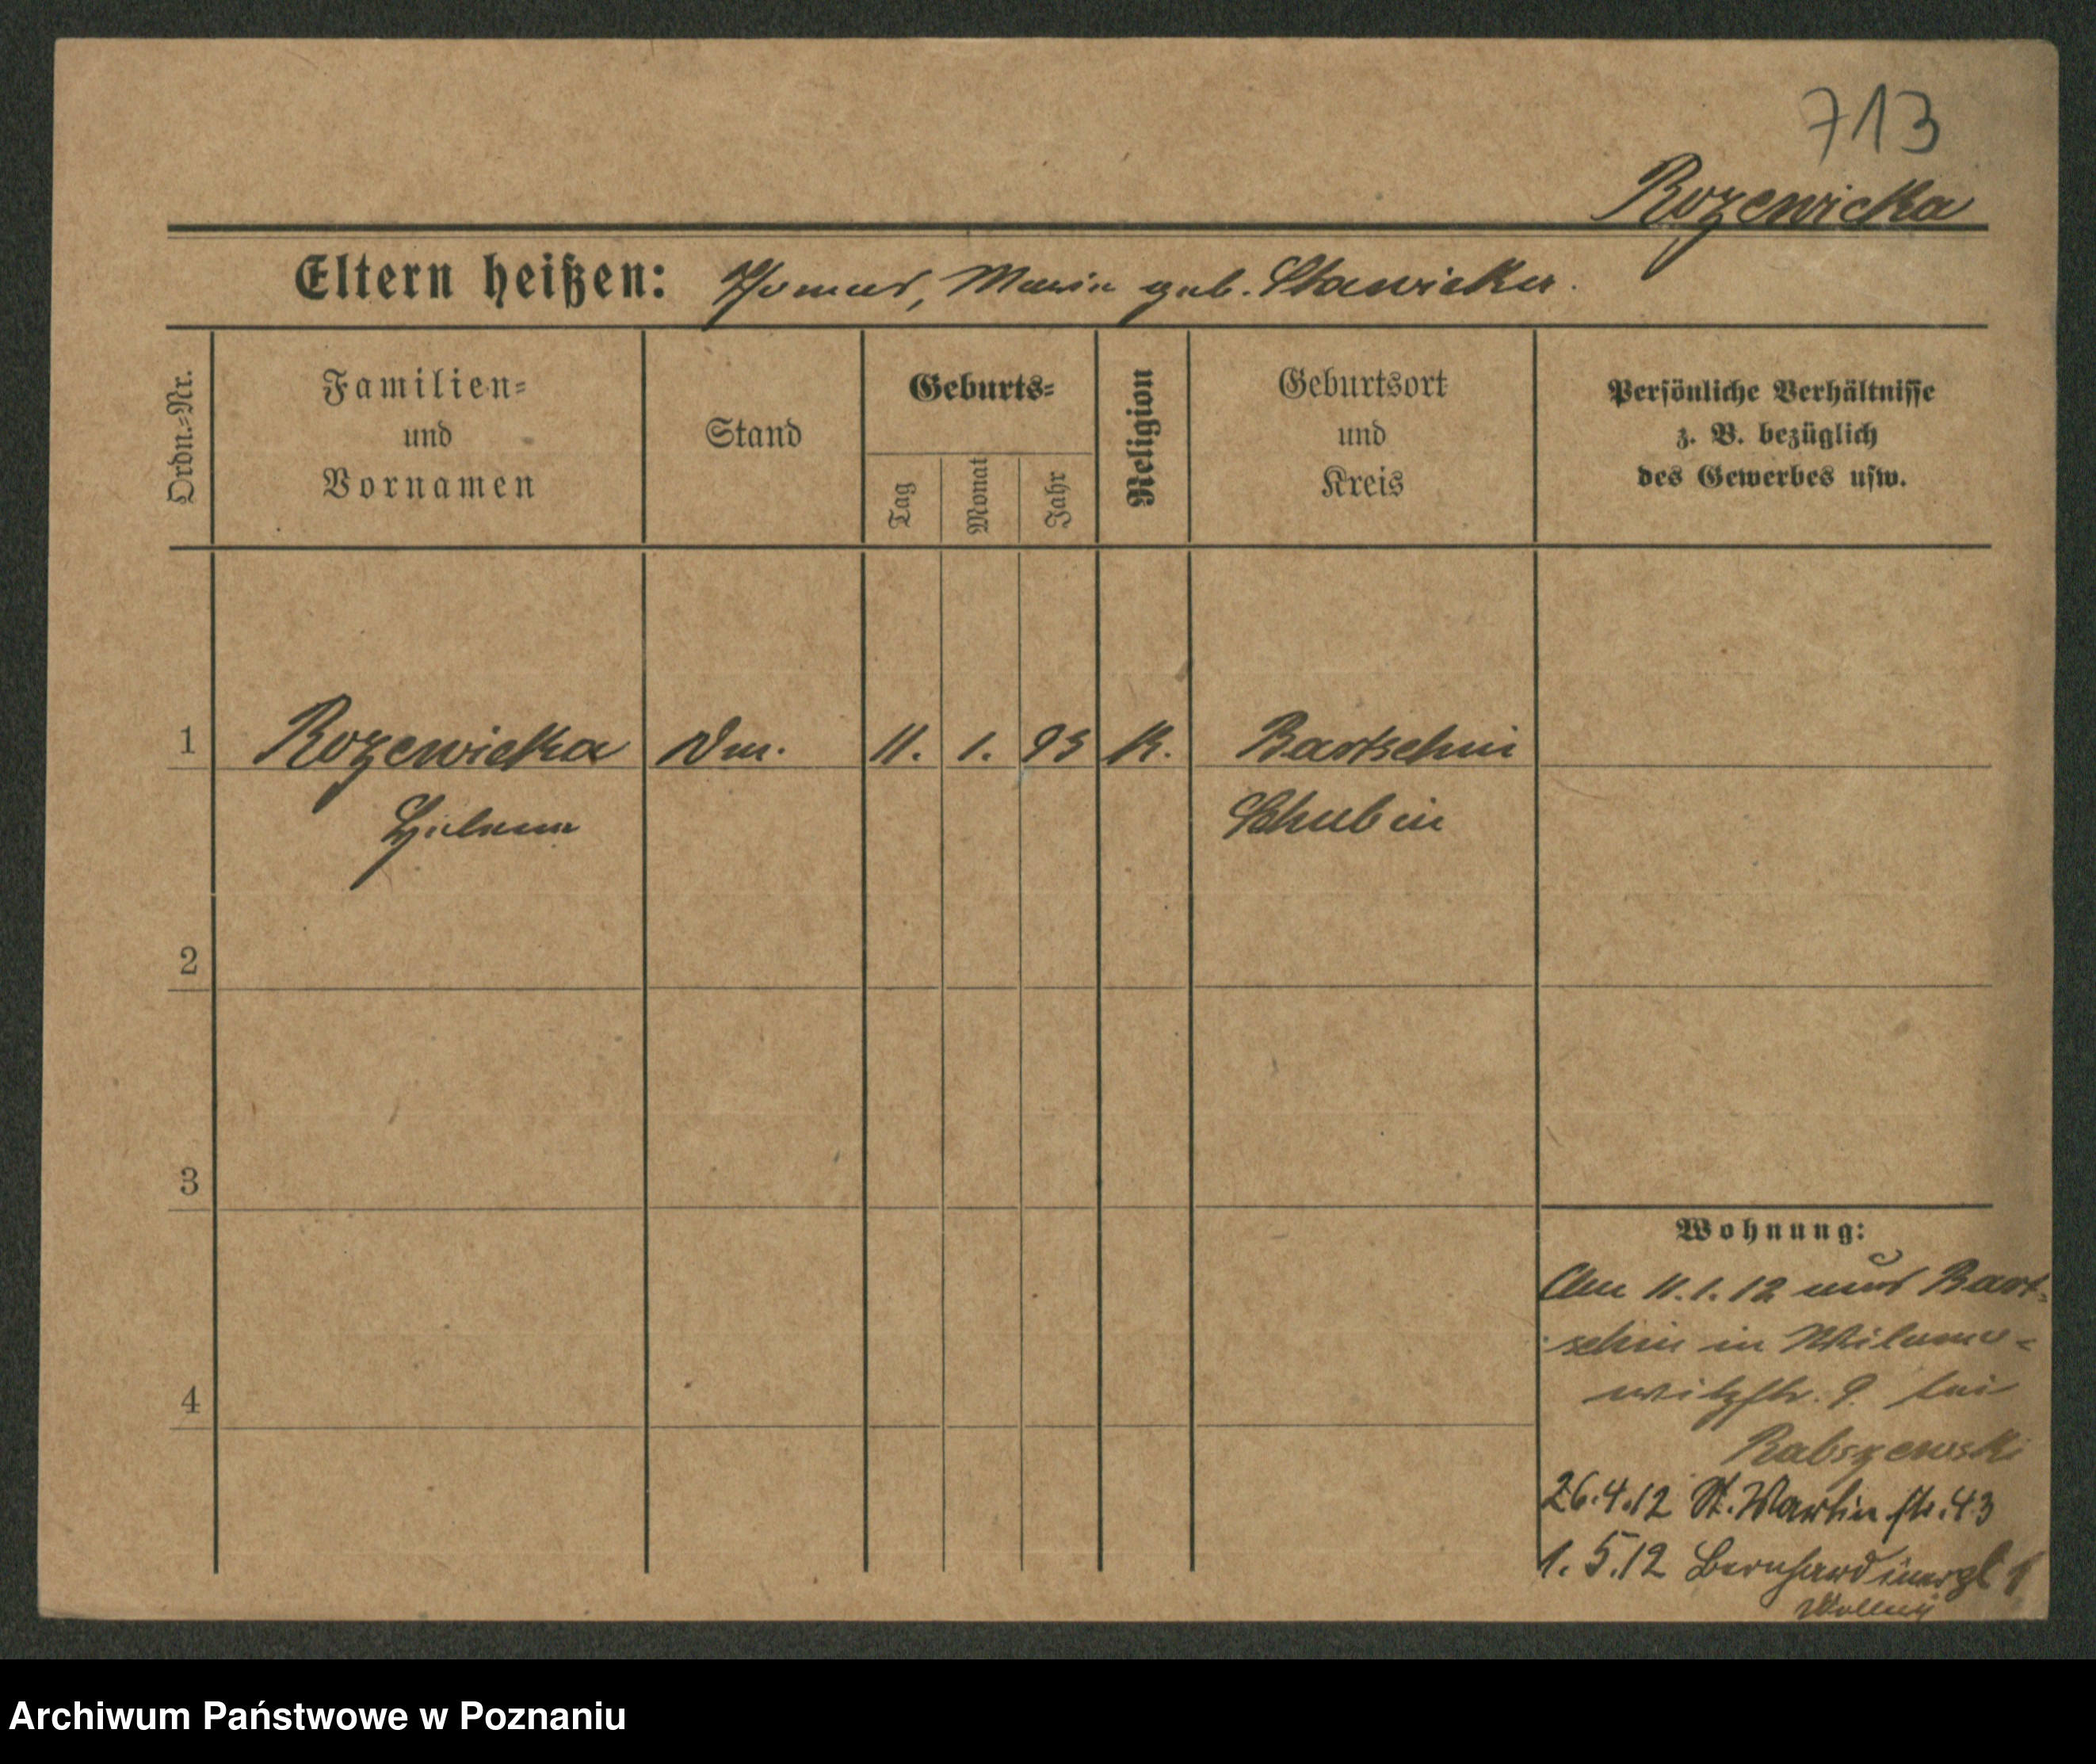 713
Rozewicka
Eltern heißen: Thomas, Maria geb. Stawicka.
Ordn.=Nr.
Familien=
und
Vornamen
Stand
Geburts=
Tag
Monat
Jahr
Religion
Geburtsort
und
Kreis
Persönliche Verhältnisse
z. B. bezüglich
des Gewerbes usw.
1 Rozewicka Dm. 11. 1. 93 K. Bartschin
Helena Schubin
2
3
4
Wohnung:
Am 11.1.12 aus Bart=
schin in
witzstr. 9. bei
Rabszewski
26.4.12 St. Martin str. 43
1.5.12 Bernhardinerpl 1
Archiwum Państwowe w Poznaniu